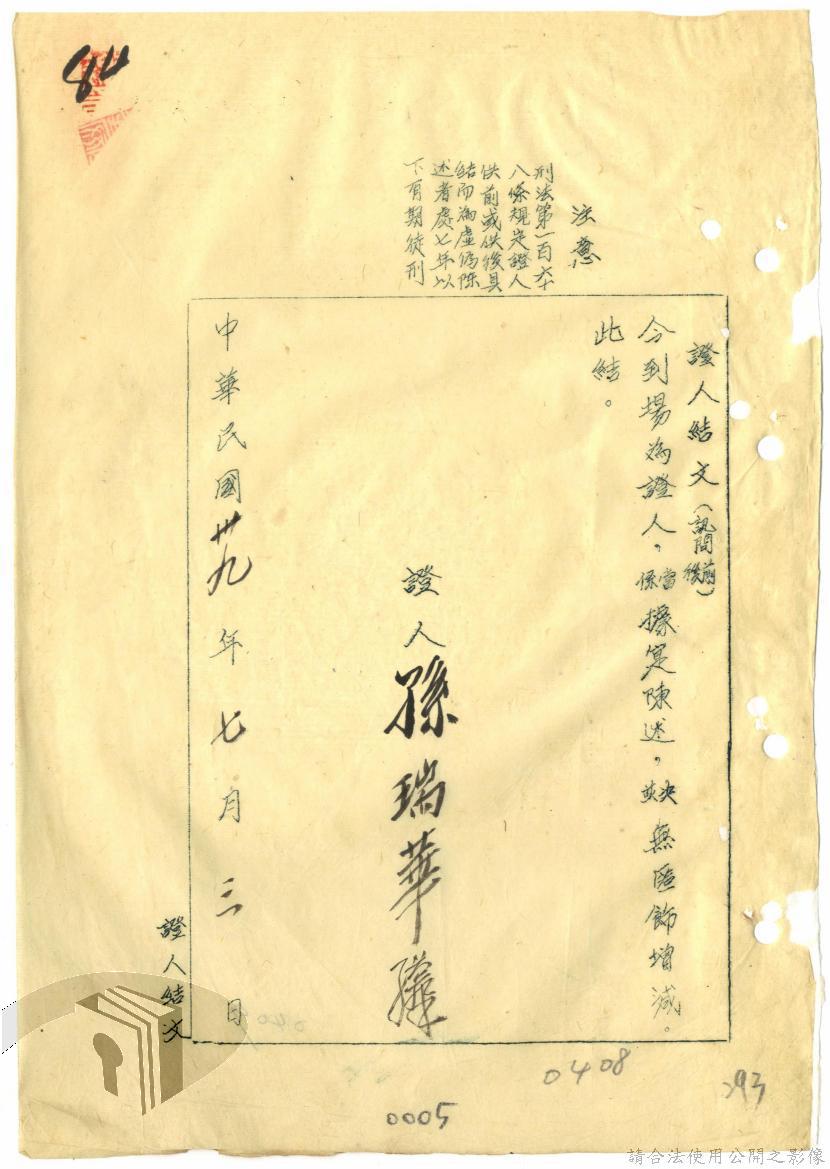 84
注意
刑法第一百六十
八條規定證人
供前或供後具
結而為虛偽陳
述者處七年以
下有期徒刑
證人結文(訊問前後)
今到場為證人,當係據實陳述,決並無匿飾增減。
此結。
證人孫瑞華
中華民國卅九年七月三日
證人結文
0408
0005
293
請合法使用公開之影像